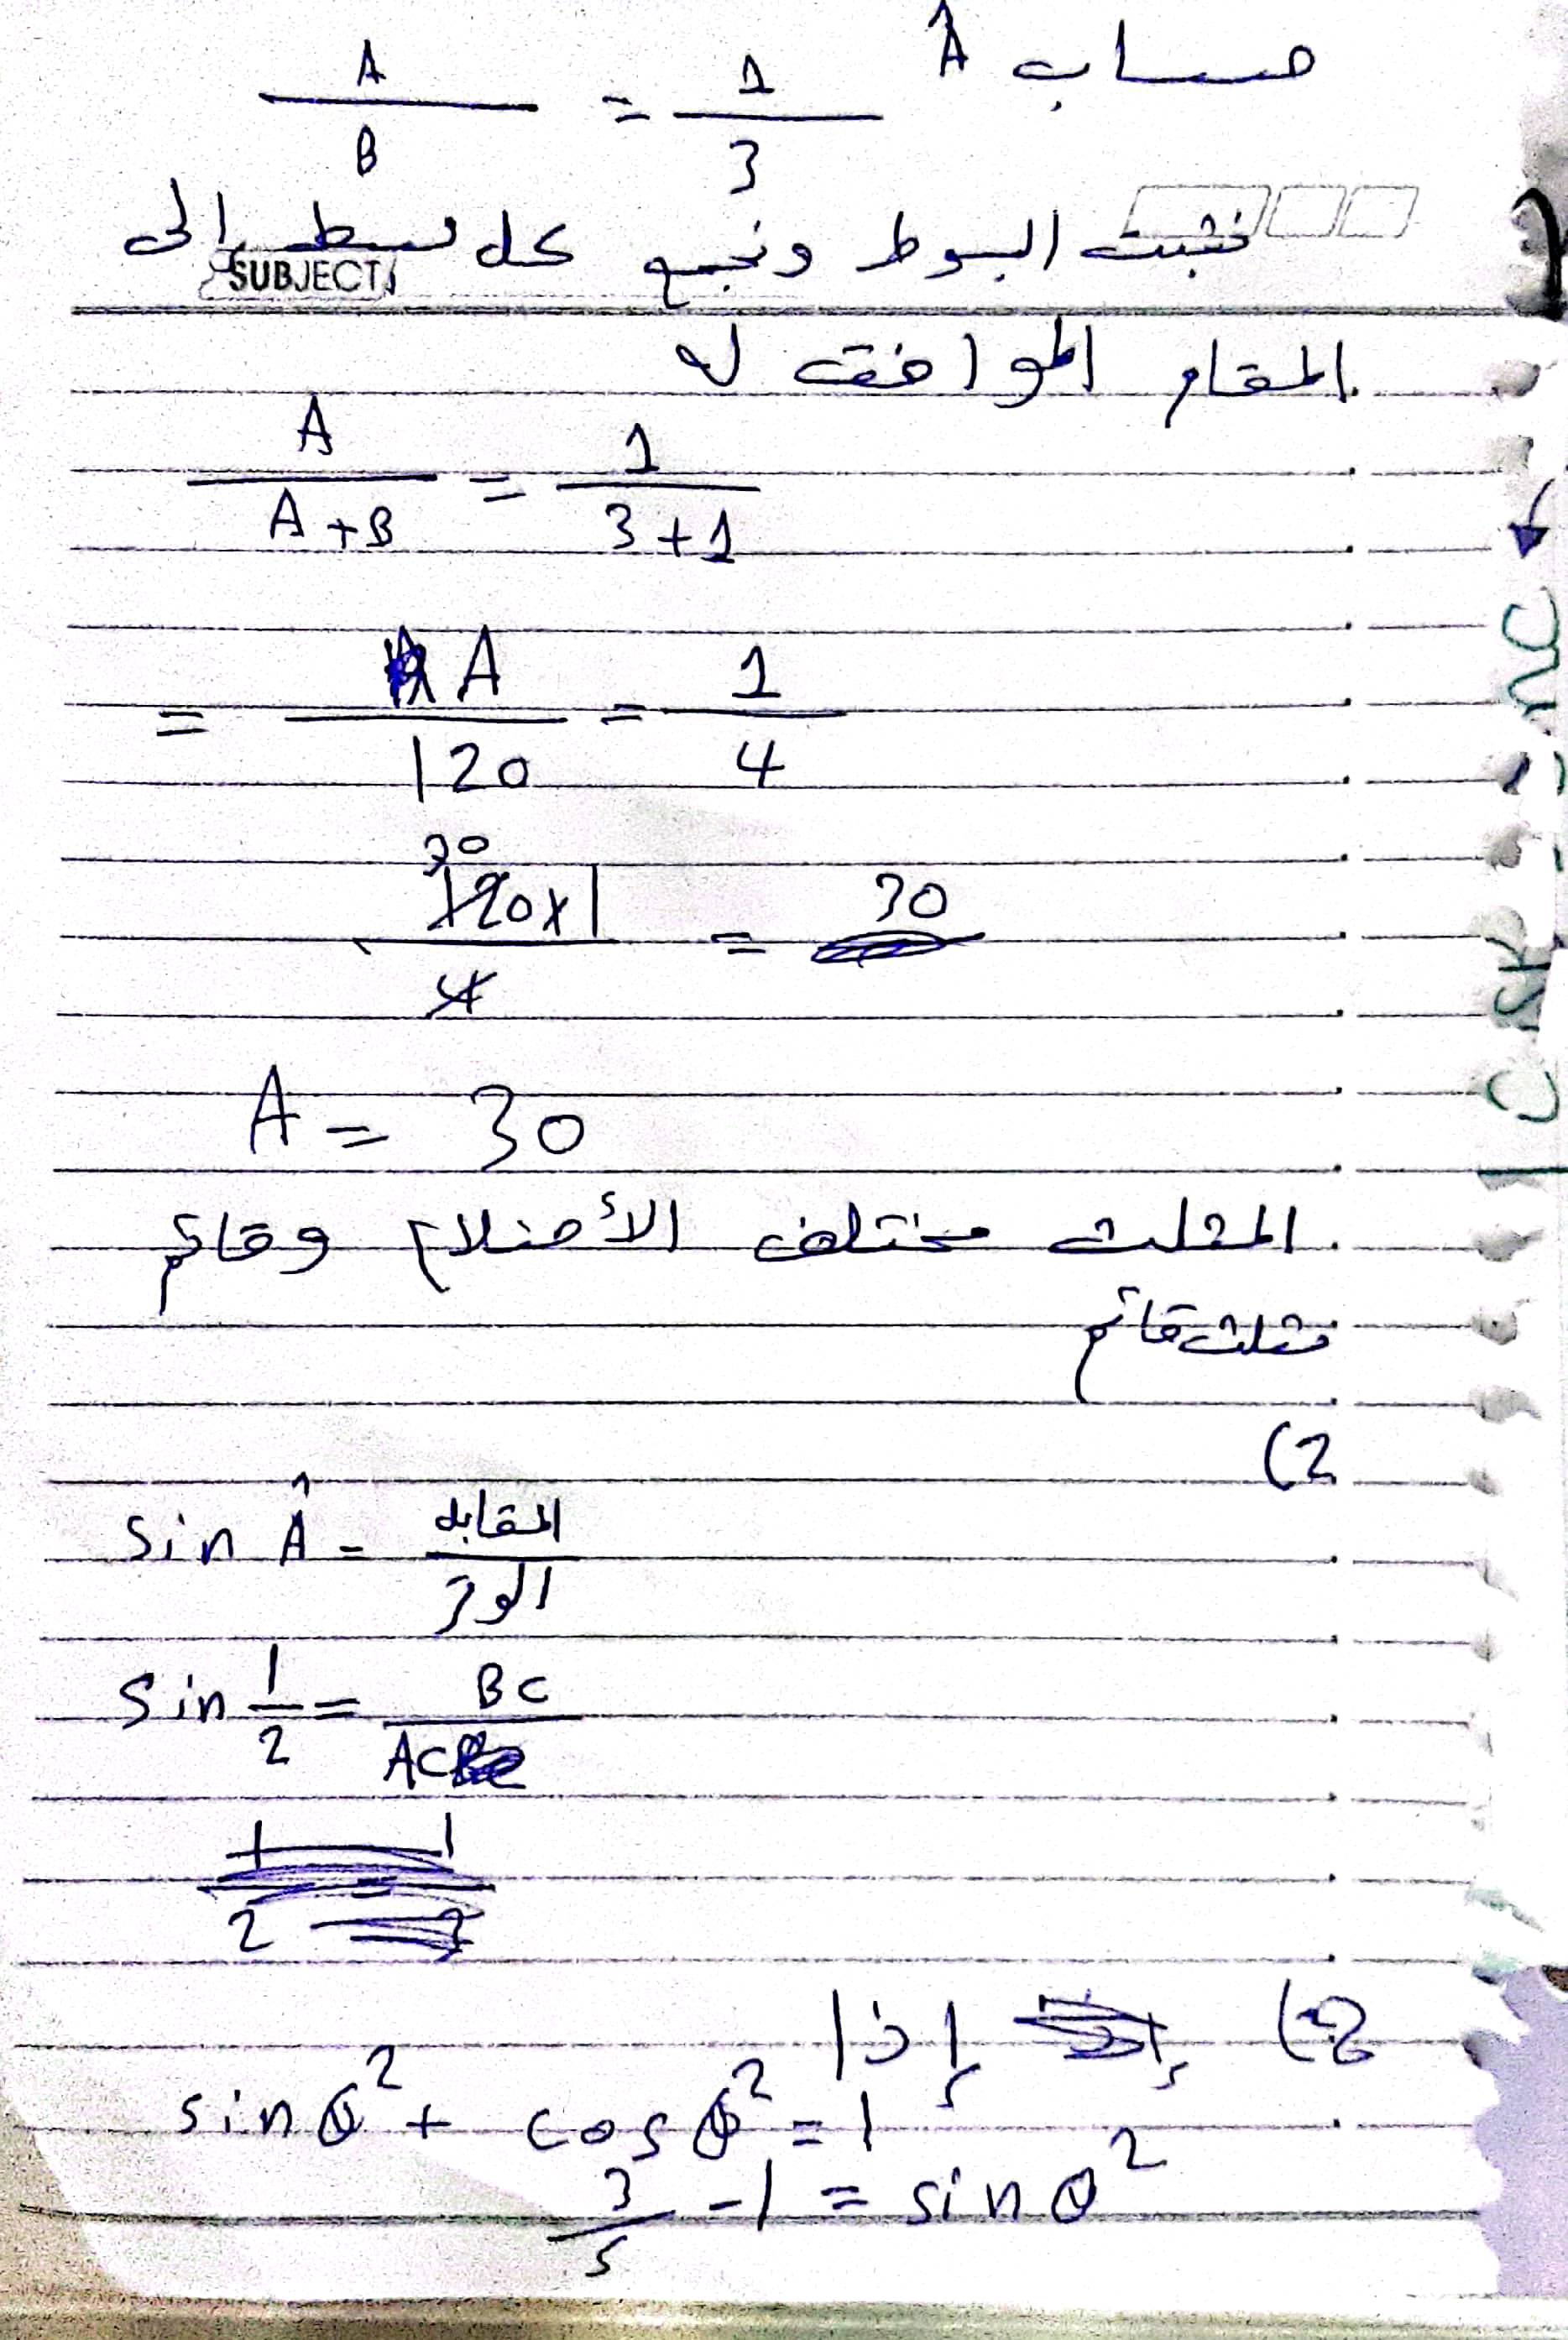 حساب Â
A/B = 1/3
نثبت البسوط ونجمع كل بسط إلى
SUBJECT
المقام الموافق له
A/A+B = 1/3+1
= A/120 = 1/4
30
120x1/4 = 30
A = 30
المثلث مختلف الأضلاع وقائم
مثلث قائم
(2
sin Â = المقابل/الوتر
sin 1/2 = BC/AC
1/2 = 1/2
إذا
sinθ² + cosθ² = 1
3/5 - 1 = sinθ²